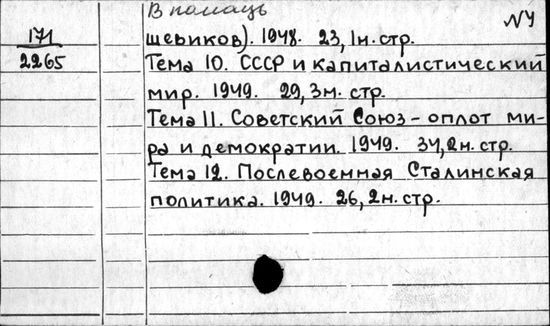 В помощь
N4
171
2265
шевиков). 1948. 23, 1н. стр.
Тема 10. СССР и капиталистический
мир. 1949. 29, 3н. стр.
Тема 11. Советский Союз – оплот ми-
ра и демократии. 1949. 34, 2н. стр.
Тема 12. Послевоенная Сталинская
политика. 1949. 26, 2н. стр.